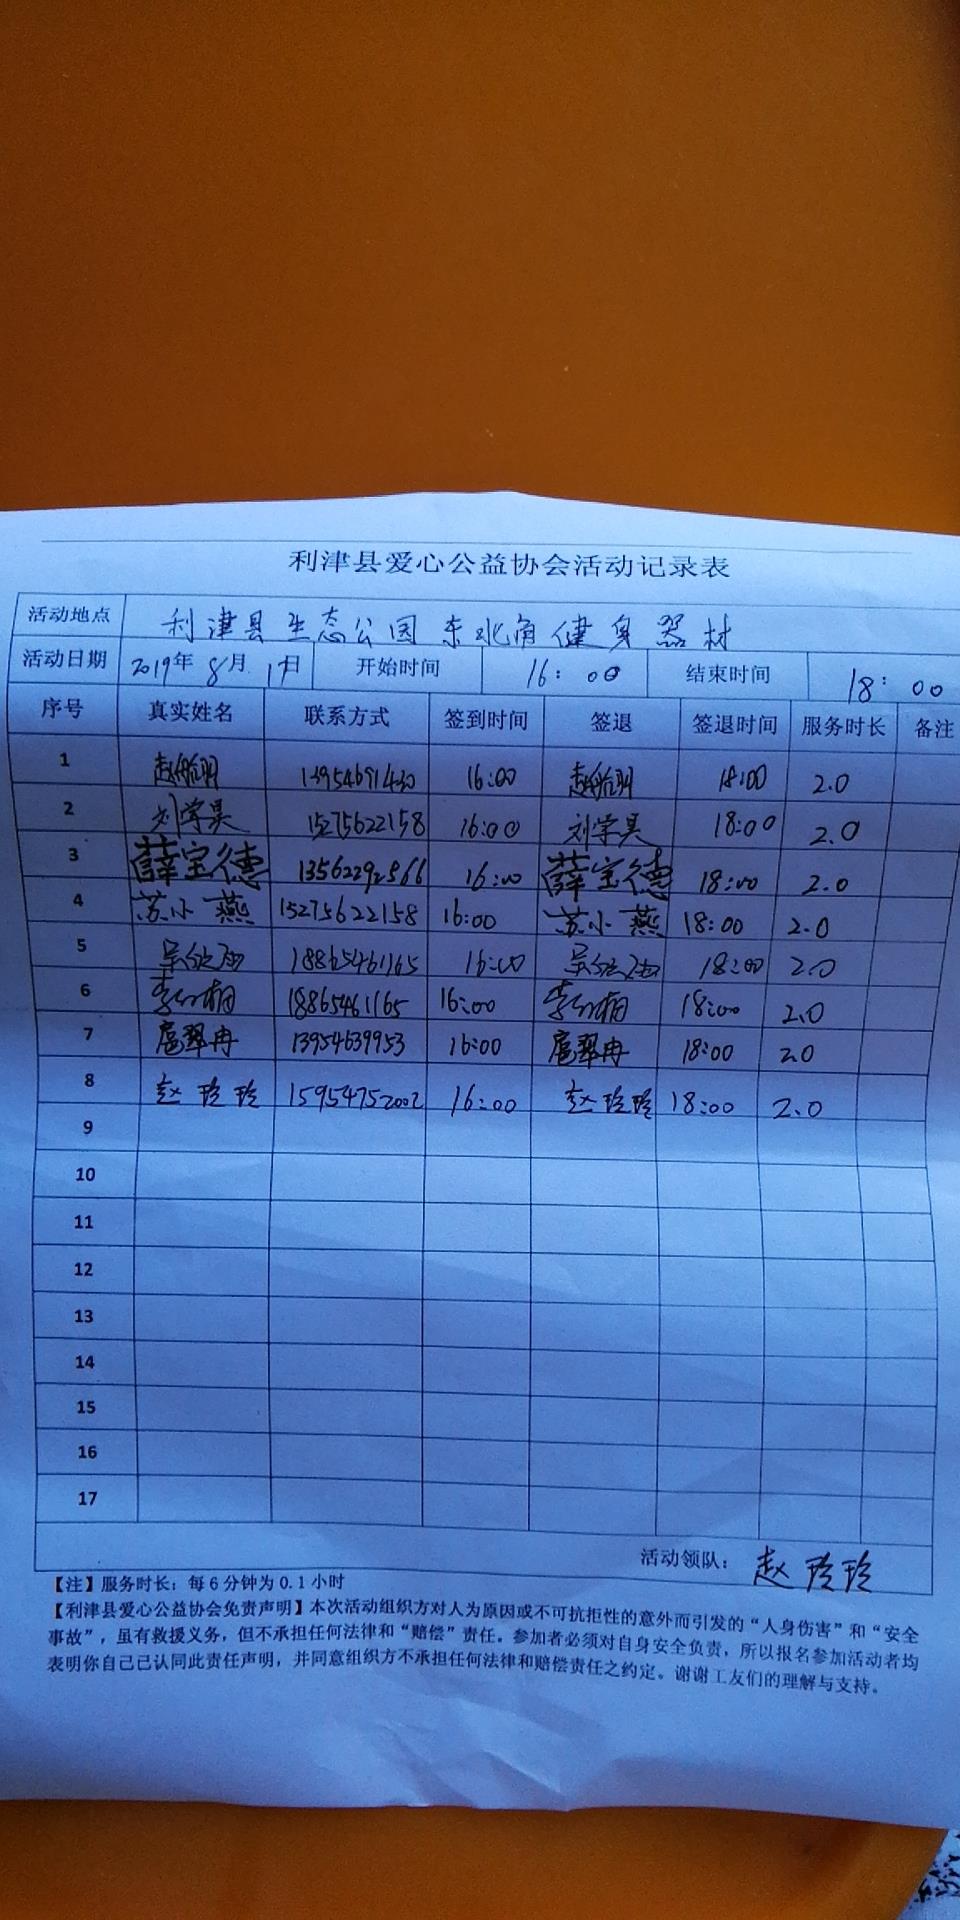 利津县爱心公益协会活动记录表
活动地点 利津县生态公园东北角健身器材
活动日期 2019年8月17日 开始时间 16:00 结束时间 18:00
序号 真实姓名 联系方式 签到时间 签退 签退时间 服务时长 备注
1 13954691430 16:00 18:00 2.0
2 刘学昊 15275622158 16:00 刘学昊 18:00 2.0
3 薛宝德 13562292566 16:00 薛宝德 18:00 2.0
4 苏小燕 15275622158 16:00 苏小燕 18:00 2.0
5 18865461165 16:00 18:00 2.0
6 18865461165 16:00 18:00 2.0
7 扈翠冉 13954639953 16:00 扈翠冉 18:00 2.0
8 赵玲玲 15954752002 16:00 赵玲玲 18:00 2.0
9
10
11
12
13
14
15
16
17
活动领队：赵玲玲
【注】服务时长：每6分钟为0.1小时
【利津县爱心公益协会免责声明】本次活动组织方对人为原因或不可抗拒性的意外而引发的“人身伤害”和“安全
事故”，虽有救援义务，但不承担任何法律和“赔偿”责任。参加者必须对自身安全负责，所以报名参加活动者均
表明你自己已认同此责任声明，并同意组织方不承担任何法律和赔偿责任之约定。谢谢工友们的理解与支持。